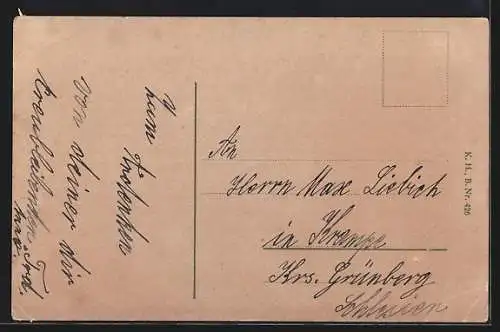 Zum Andenken
von deiner dir
treubleibenden Frd.
Max.
An
Herrn Max Liebich
in Krampe
Krs. Grünberg
Schlesien
K. H., B. Nr. 426